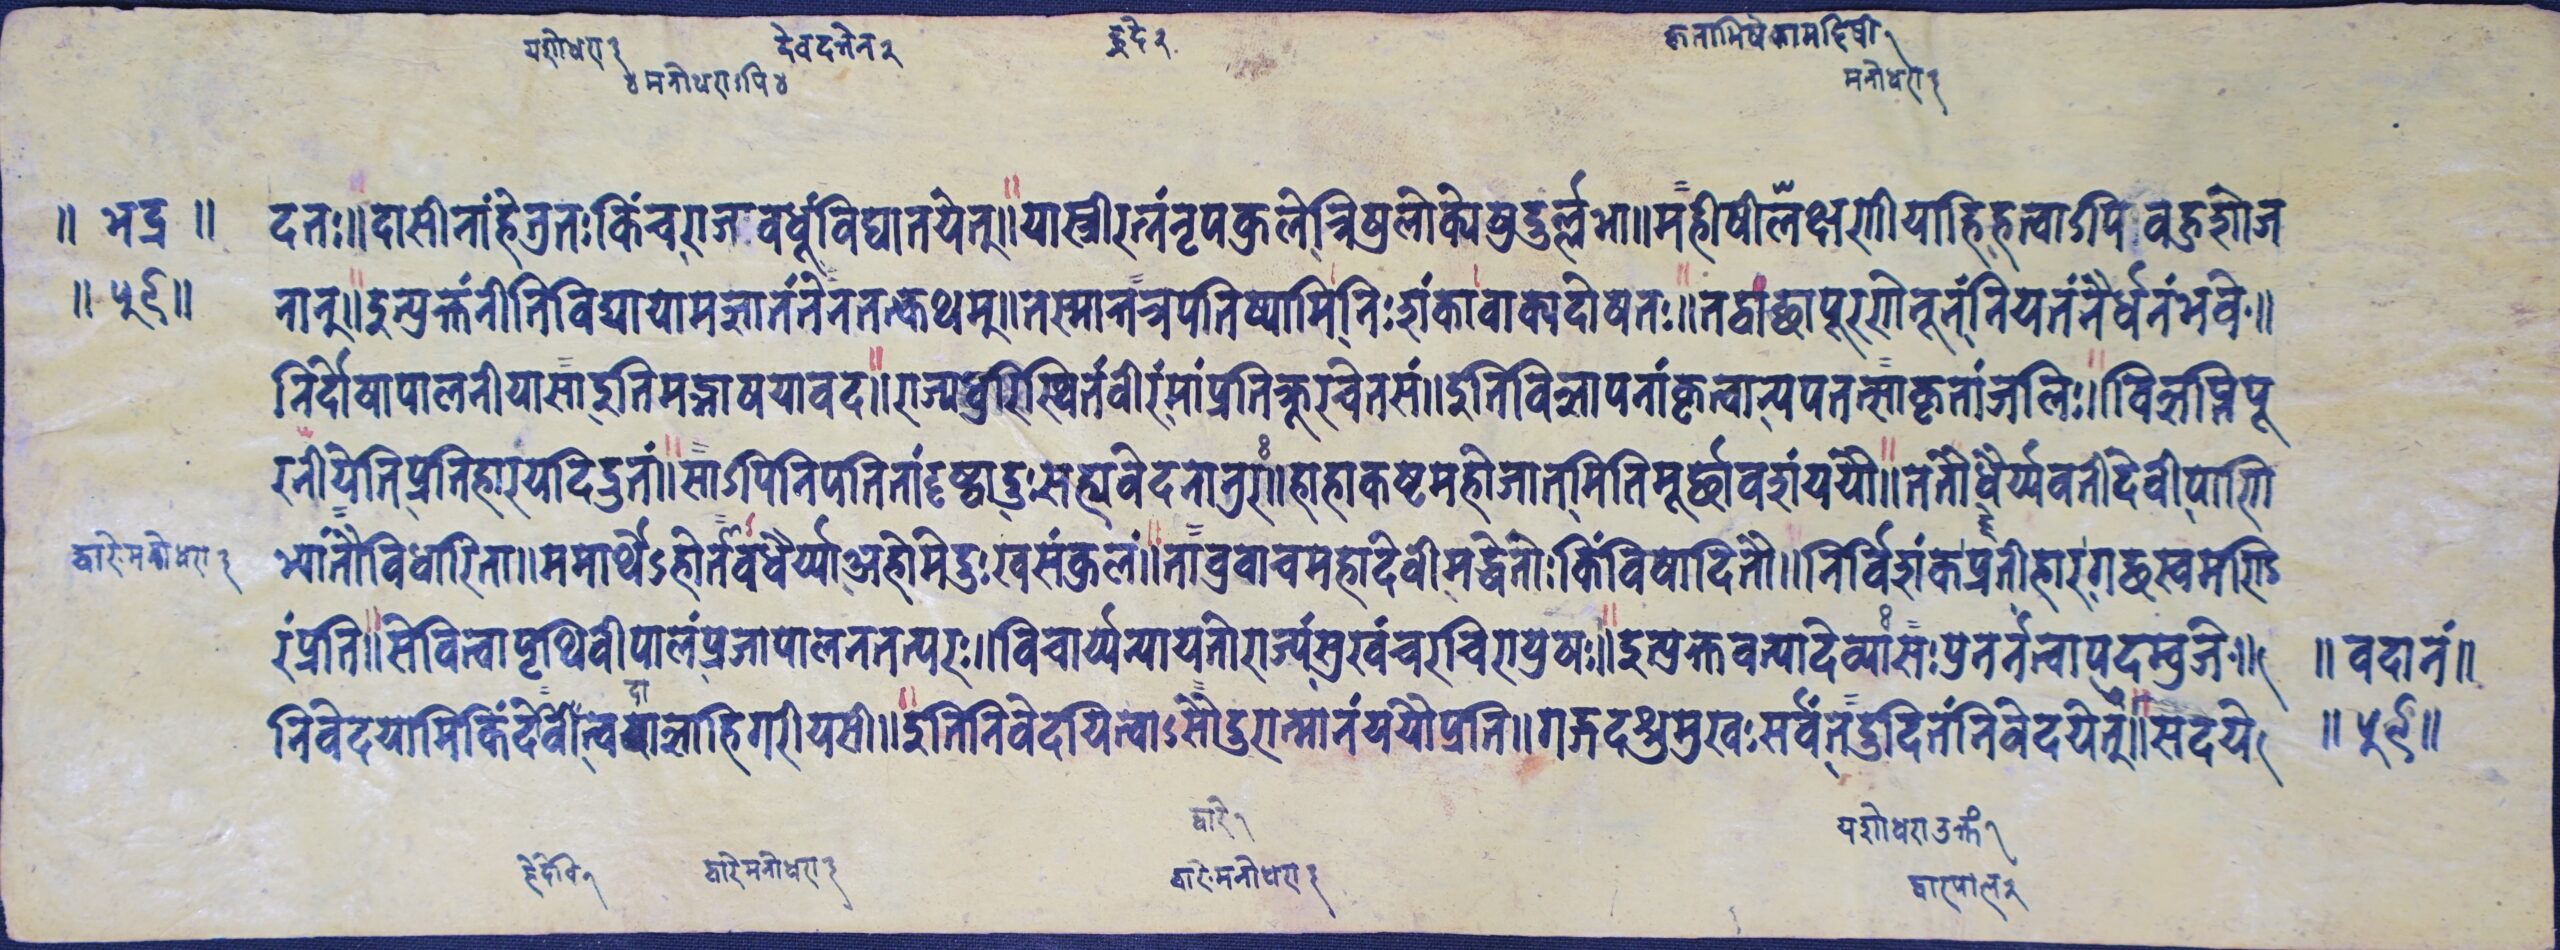 यशोधरा३ देवदत्तेन२ कृताभिषेकामहिषी१
४मनोधराऽपि४ मनोधरा३
॥ भद्र ॥ दतः॥दासीनांहेतुतःकिंचराजवधूंविघातयेत्॥यास्त्रीरत्नंनृपकुलेत्रिषुलोकेषुदुर्ल्लभा॥महीषीलक्षणीयाहिहत्वाऽपिबहुशोज
नात्॥इत्युक्तंनीतिविद्यायामज्ञातंतेनतत्कथम्॥तस्मात्तत्रपतिष्यामिनिःशंकावाक्यदोषतः॥तद्वाञ्छापूरणीनूनंनियतंनैर्धनंभवे॥
निर्दोषापालनीयासाइतिमद्भाषयावद॥राज्यधुरिस्थितंवीरंमांप्रतिक्रूरचेतसं॥इतिविज्ञापनांकृत्वान्यपतत्साकृतांजलिः॥विज्ञप्तिपू
रनीयेतिप्रतिहारयदिद्रुतं॥साऽपिनिपतितांदृष्ट्वादुःसह्यवेदनातुरा॥हाहाकष्टमहोजातमितिमूर्छावशंययौ॥ततोधैर्य्यवतीदेवीपाणि
द्वारेमनोधरा३ भ्यांतौविधारिता॥ममार्थेऽहोतवधैर्य्याअहोमेदुःखसंकुलं॥तावुवाचमहादेवीमद्धेतोःकिंविषादितौ॥निर्विशंकप्रतीहारगच्छस्वमणि
रंप्रति॥सेवित्वापृथिवीपालंप्रजापालनतत्परः॥विचार्य्यन्यायतोराज्यंसुखंचरचिरायुषः॥इत्युक्तवत्यादेव्यासःप्रनर्नत्वापदम्बुजे॥ ॥ वदानं॥
निवेदयामिकिंदेवीत्वदाज्ञाहिगरीयसी॥इतिनिवेदयित्वाऽसौदुरात्मानंययौप्रति॥गद्गदश्रुमुखःसर्वंतदुदितंनिवेदयेत्॥सदये
द्वारे१ यशोधराउक्तं१
हेदेवि१ द्वारेमनोधरा३ द्वारेमनोधरा३ द्वारपाल२